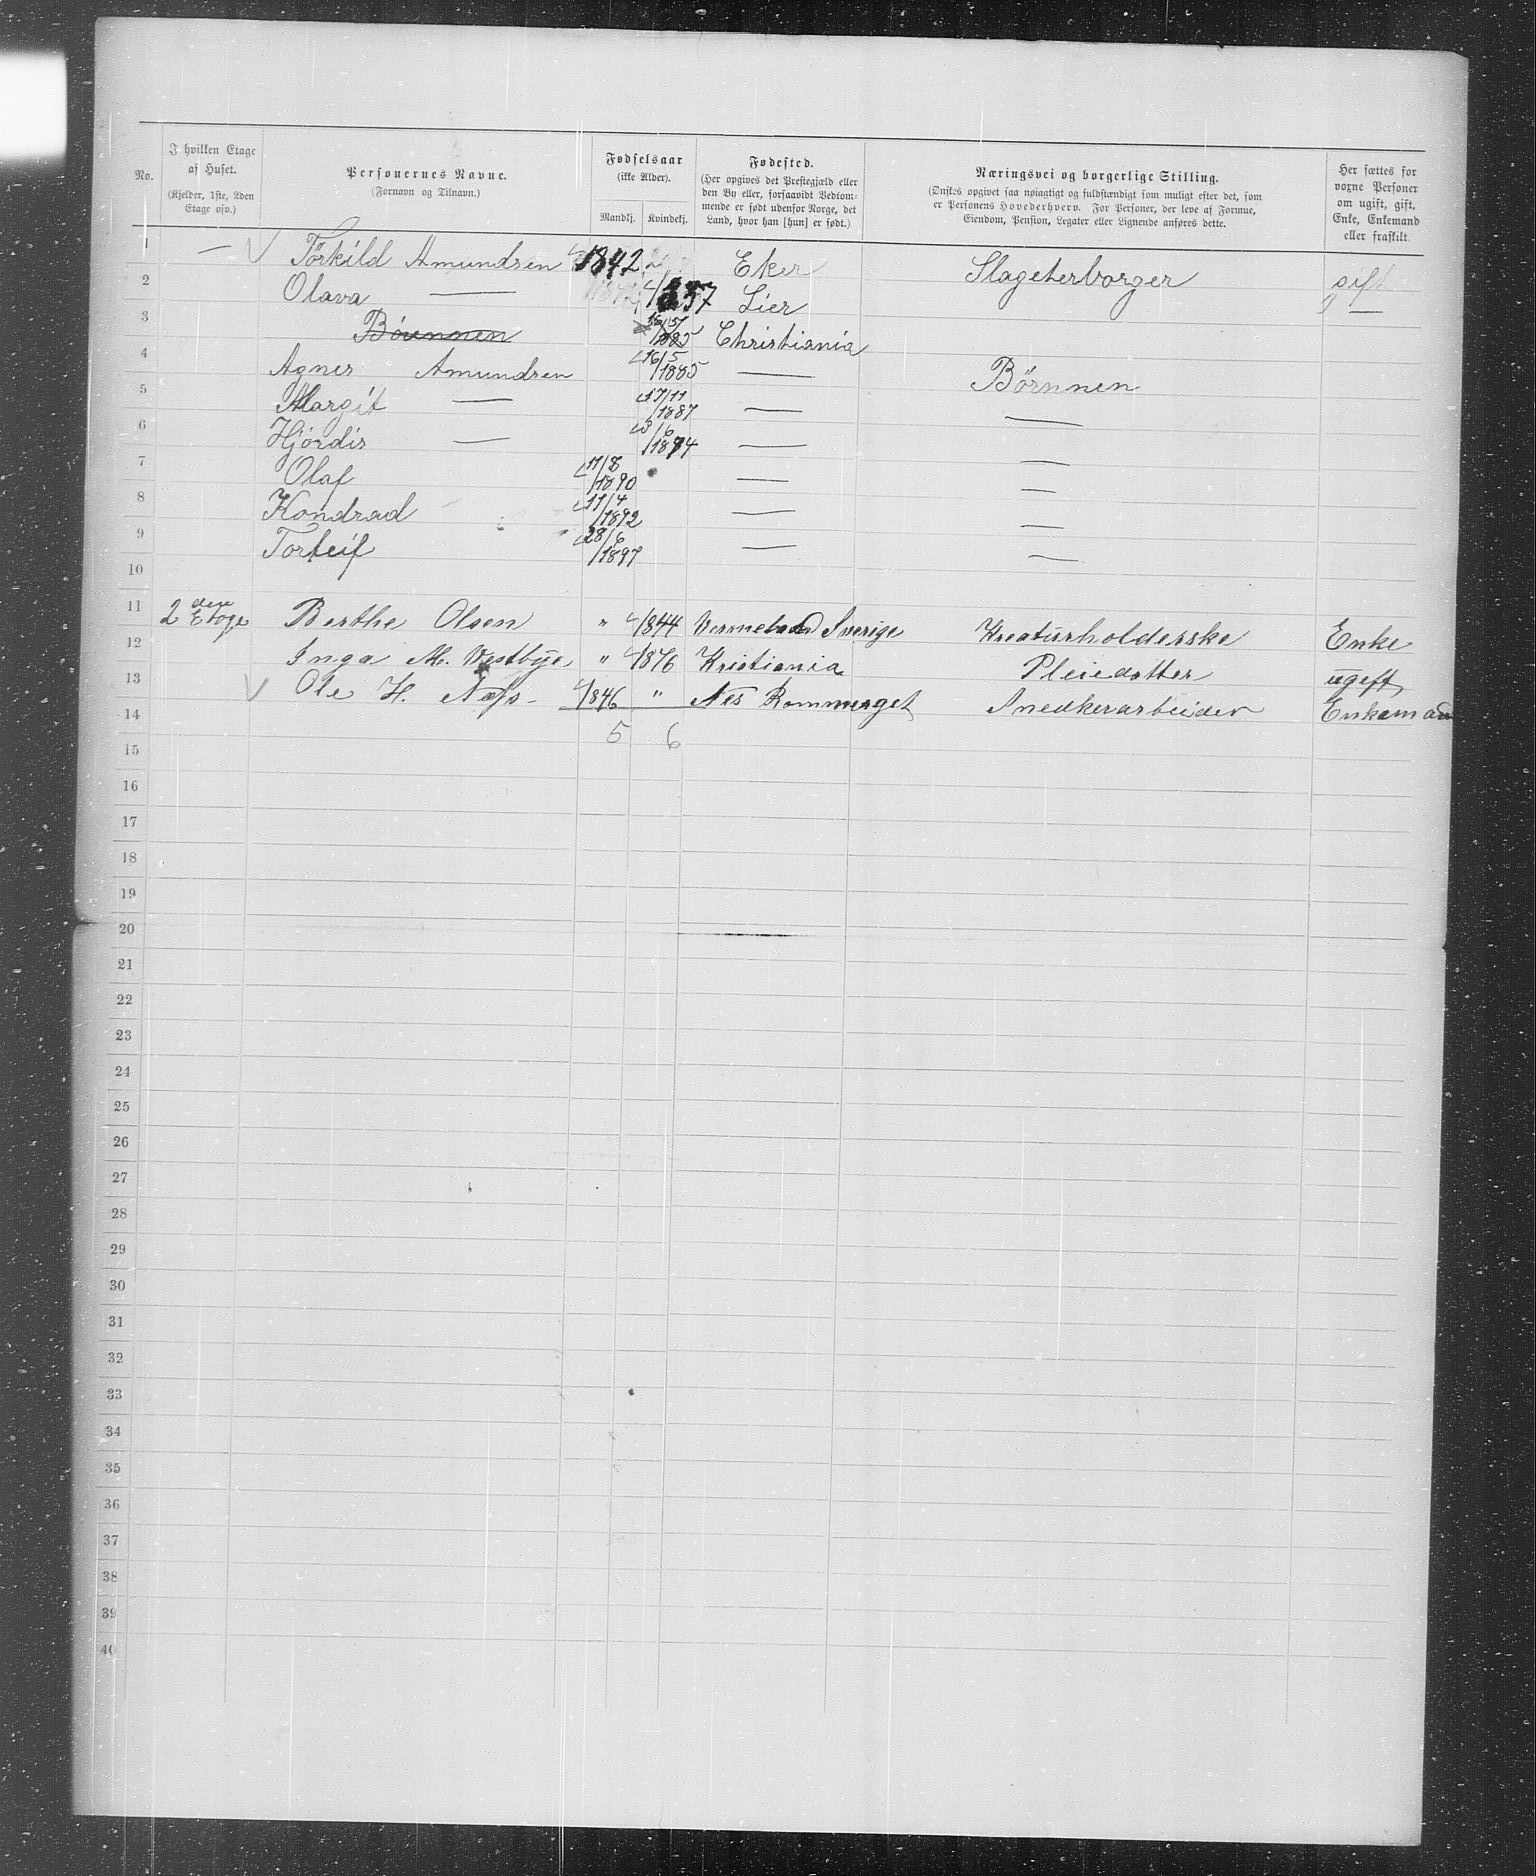 No.
I hvilken Etage af Huset.
(Kjelder, 1ste, 2den Etage osv.)
Personernes Navne.
(Fornavn og Tilnavn.)
Fødselsaar
(ikke Alder).
Mandkj. Kvindekj.
Fødested.
(Her opgives det Prestegjæld eller
den By eller, forsaavidt Vedkom-
mende er født udenfor Norge, det
Land, hvor han [hun] er født.)
Næringsvei og borgerlige Stilling.
(Ønskes opgivet saa nøiagtigt og fuldstændigt som muligt efter det, som
er Personens Hovederhverv. For Personer, der leve af Formue,
Eiendom, Pension, Legater eller Lignende anføres dette.
Her sættes for
voxne Personer
om ugift, gift,
Enke, Enkemand
eller fraskilt.
1 — Torkild Amundsen 1842 Eker Slagterborger gift
2 Olava — 1857 Lier —
3 Børnnen 16/5 1885 Christiania
4 Agnes Amundsen 16/5 1885 — Børnnen
5 Margit — 17/11 1887 — —
6 Hjördis — 3/6 1894 — —
7 Olaf 11/8 1890 — —
8 Kondrad 11/4 1892 — —
9 Torleif 28/6 1897 — —
10
11 2den Etage Berthe Olsen " 1844 Vermeland Sverige Kreaturholderske Enke
12 Inga M. Westbye " 1876 Kristiania Pleiedatter ugeft
13 Ole H. Næss - 1846 " Nes Rommerget Snedkerarbeider Enkemand
14 5 6
15
16
17
18
19
20
21
22
23
24
25
26
27
28
29
30
31
32
33
34
35
36
37
38
39
40